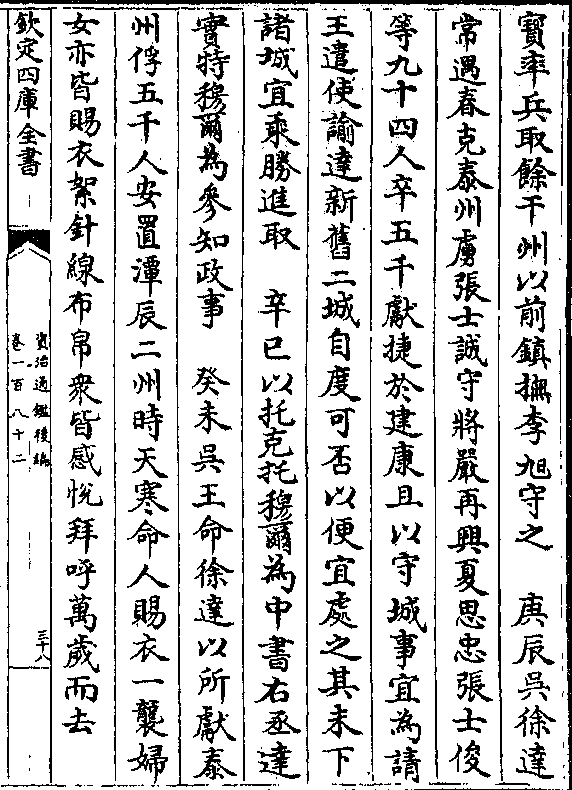 寶率兵取餘干州以前鎮撫李旭守之　庚辰吳徐達
常遇春克泰州虜張士誠守將嚴再興夏思忠張士俊
等九十四人卒五千獻捷於建康且以守城事宜為請
王遣使諭達新舊二城自度可否以便宜處之其未下
諸城宜乘勝進取　辛巳以托克托穆爾為中書右丞達
實特穆爾為參知政事　癸未吳王命徐達以所獻泰
州俘五千人安置潭辰二州時天寒命人賜衣一襲婦
女亦皆賜衣絮針線布帛衆皆感悅拜呼萬歲而去
欽定四庫全書
資治通鑑後編
卷一百八十二
三十八